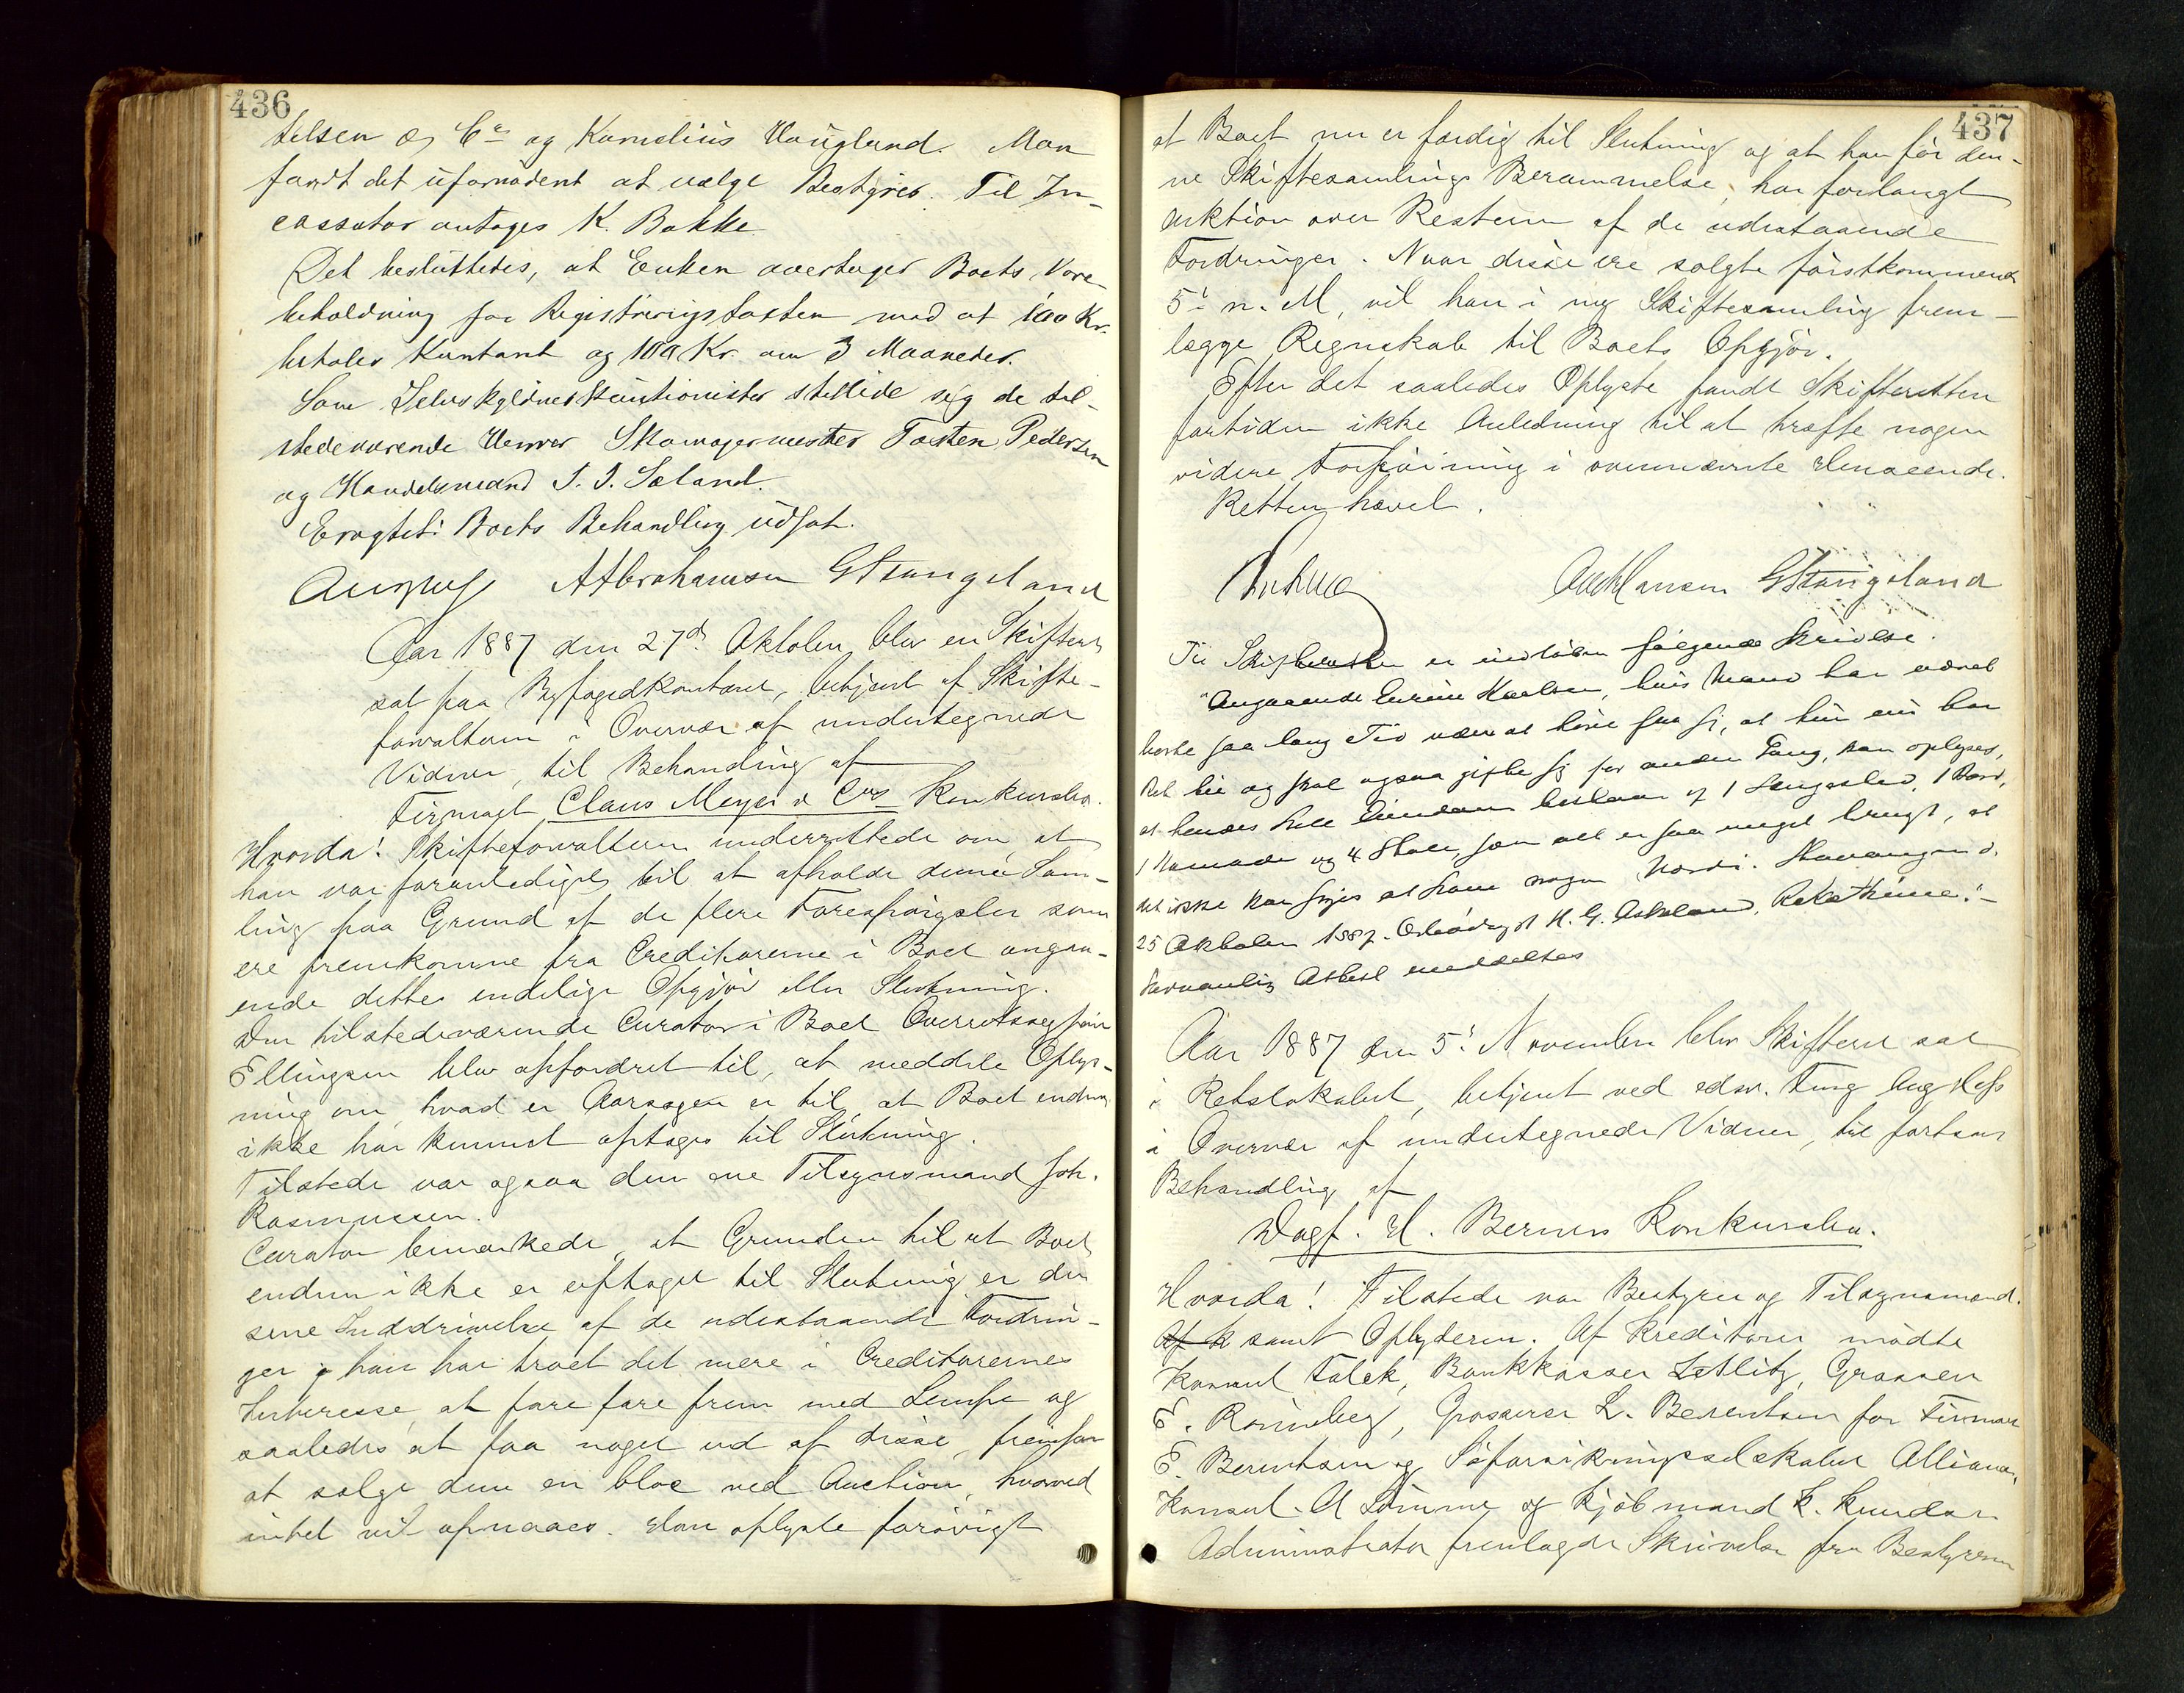 436
telsen og Co og Kornelius Haugland. Man
fandt det ufornødent at vælge Bestyrer. Til In-
cassator antages K. Bakke.
Det besluttedes, at Enken overtager Boets Vare-
beholdning for Registreringstaksten mod at 100 Kr.
betales Kontant og 100 Kr. om 3 Maaneder.
Som Selvskyldnerkautionister stillede sig de til-
stedeværende Herrer Skomagermester Tosten Pedersen
og Handelsmand T. T. Sæland.
Eragtet: Boets Behandling udsat.
Aug A Abrahamsen G Stangeland
Aar 1887 den 27de Oktober blev en Skifteret
sat paa Byfogedkontoret, betjent af Skifte-
forvalteren i Overvær af undertegnede
Vidner, til Behandling af
Firmaet Claus Meyer & Cos Konkursbo.
Hvorda! Skifteforvalteren underrettede om, at
han var foranlediget til at afholde denne Sam-
ling paa Grund af de flere Forespørgsler som
ere fremkomne fra Creditorerne i Boet angaa-
ende dettes endelige Opgjør eller Slutning.
Den tilstedeværende Curator i Boet Overretssagfører
Ellingsen blev opfordret til, at meddele Oplys-
ning om, hvad er Aarsagen er til, at Boet endnu
ikke har kunnet optages til Slutning.
Tilstede var ogsaa den ene Tilsynsmand Joh.
Rasmussen.
Curator bemærkede, at Grunden til at Boet
endnu ikke er optaget til Slutning er den
sene Inddrivelse af de udestaaende Fordrin-
ger han har troet det mere i Creditorernes
Interesse, at fare fare frem med Lempe og
saaledes at faa noget ud af disse, fremfor
at sælge dem en bloc ved Auction, hvorved
intet vil opnaaes. Han oplyste forøvrigt
437
at Boet nu er færdig til Slutning og at han før den-
ne Skiftesamlings Berammelse, har forlangt
Auktion over Resten af de udestaaende
Fordringer. Naar disse ere solgte førstkommende
5' n. M, vil han i ny Skiftesamling frem-
lægge Regnskab til Boets Opgjør.
Efter det saaledes Oplyste fandt Skifteretten
fortiden ikke Anledning til at træffe nogen
videre Forføining i ovennævnte Henseende.
Retten hævet.
Hansen G Stangeland
Til Skifteretten er indløben følgende Skrivelse.
"Angaaende Karlsen, hvis Mand har været
borte saa lang Tid uden at høre fra sig, at hun nu har
Ret til og skal ogsaa gifte sig for anden Gang, kan oplyses,
at hendes hele Eiendom bestaar af 1 Sengested, 1 Bord,
1 Komode og 4 Stole, som alt er saa meget brugt, at
det ikke kan siges at have nogen Værdi. Stavanger d.
25 Oktober 1887. Ærbødigst H. G. Askeland,
Sædvanlig Attest meddeltes
Aar 1887 den 5' November blev Skifteret sat
i Retslokalet, betjent ved edsv. Fuldm. Aug
i Overvær af undertegnede Vidner, til fortsat
Behandling af
Dagf. H. Bernes Konkursbo.
Hvorda! Tilstede var Bestyrer og Tilsynsmænd.
Af K samt Opbyderen. Af Kreditorer mødte
Konsul Falck, Bankkasser Zetlitz, Grosserer
E. Rosenberg, Grosserer L. Berentsen for Firmaet
E. Berentsen og Søforsikringsselskabet Alliance,
Konsul A Sømme og Kjøbmand K. Knudsen
Administrator fremlagde Skrivelse fra Bestyreren